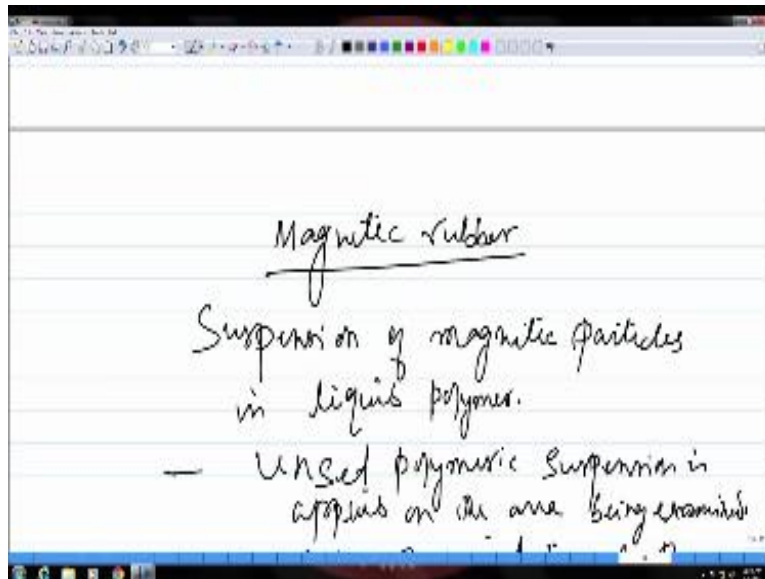 Magnetic rubber
Suspension of magnetic particles
in liquid polymer.
— Unsed polymeric suspension is
applied on the area being examined